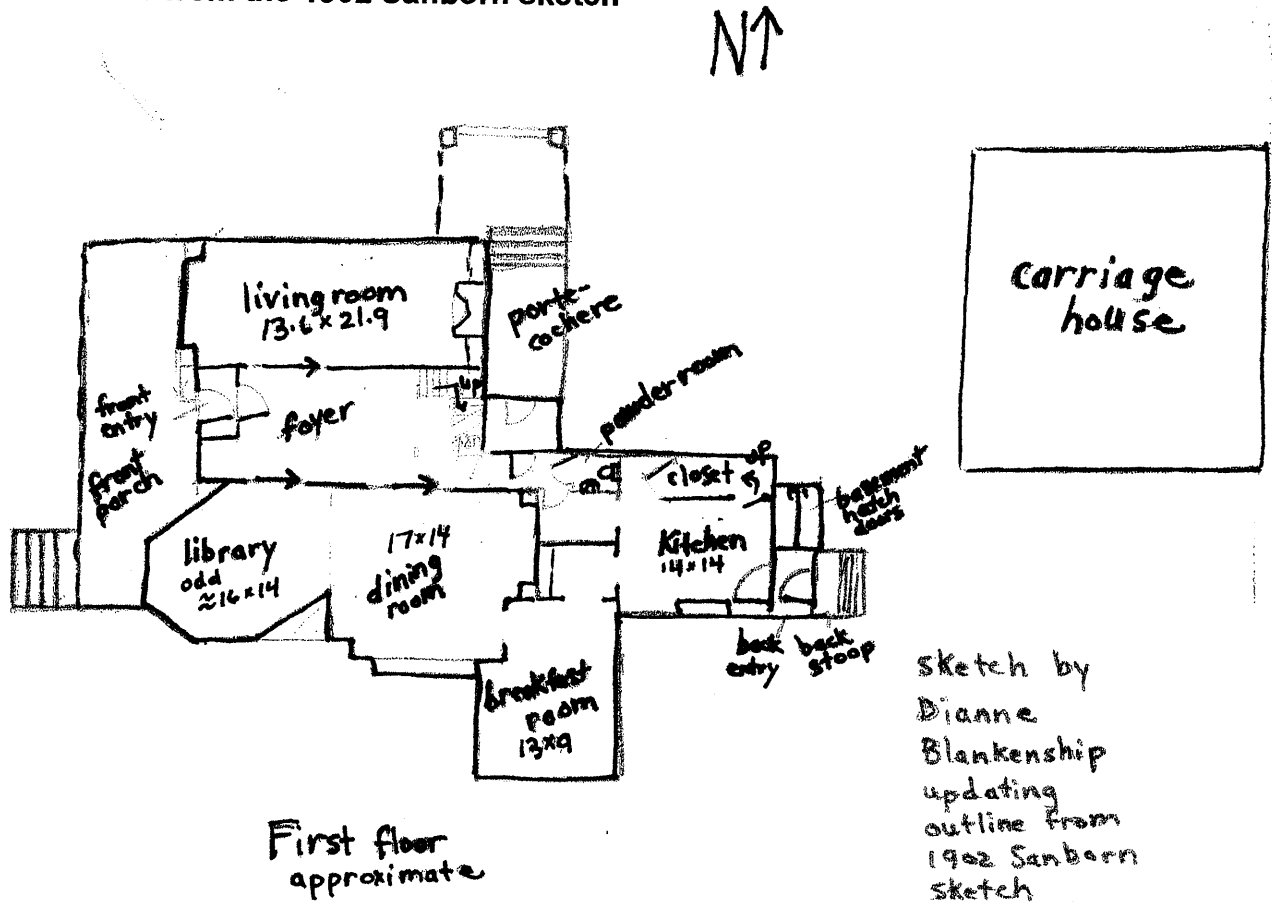 the 1902 Sanborn sketch
N↑
living room
13.6 x 21.9
porte-
cochere
carriage
house
up
powder room
front
entry
foyer
front
porch
closet
up
basement
hatch
doors
library
odd
≈16 x 14
17x14
dining
room
Kitchen
14x14
back
entry
back
stoop
breakfast
room
13x9
First floor
approximate
Sketch by
Dianne
Blankenship
updating
outline from
1902 Sanborn
sketch